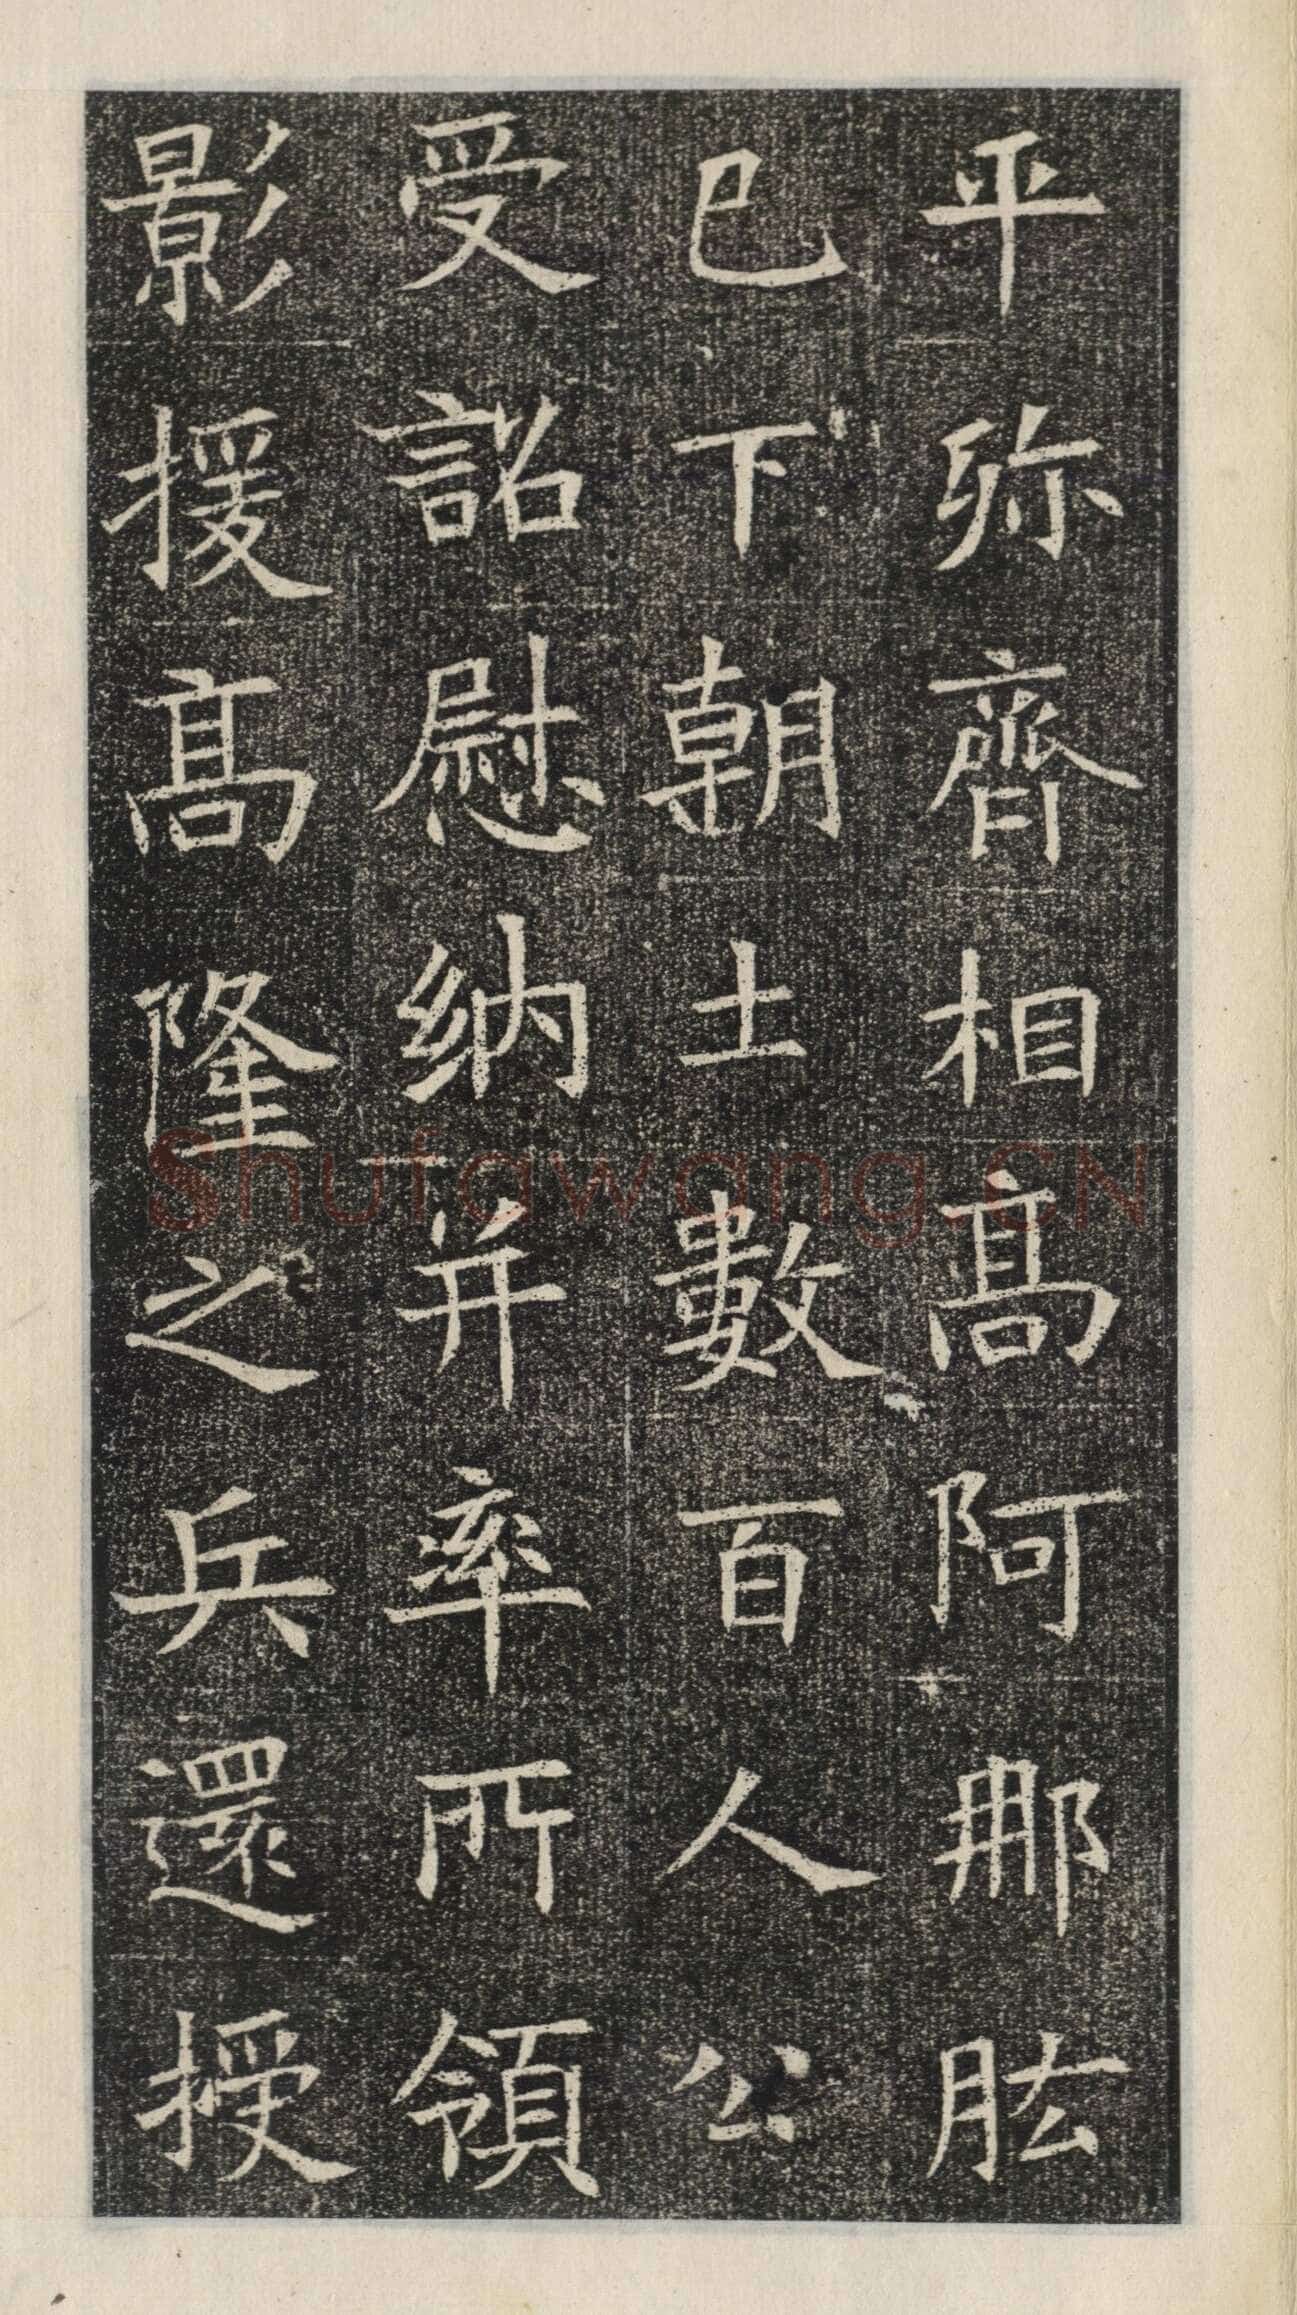 平弥齊相高阿那肱
已下朝士數百人公
受詔慰納并率所領
影援高隆之兵還授
Shufawang.CN